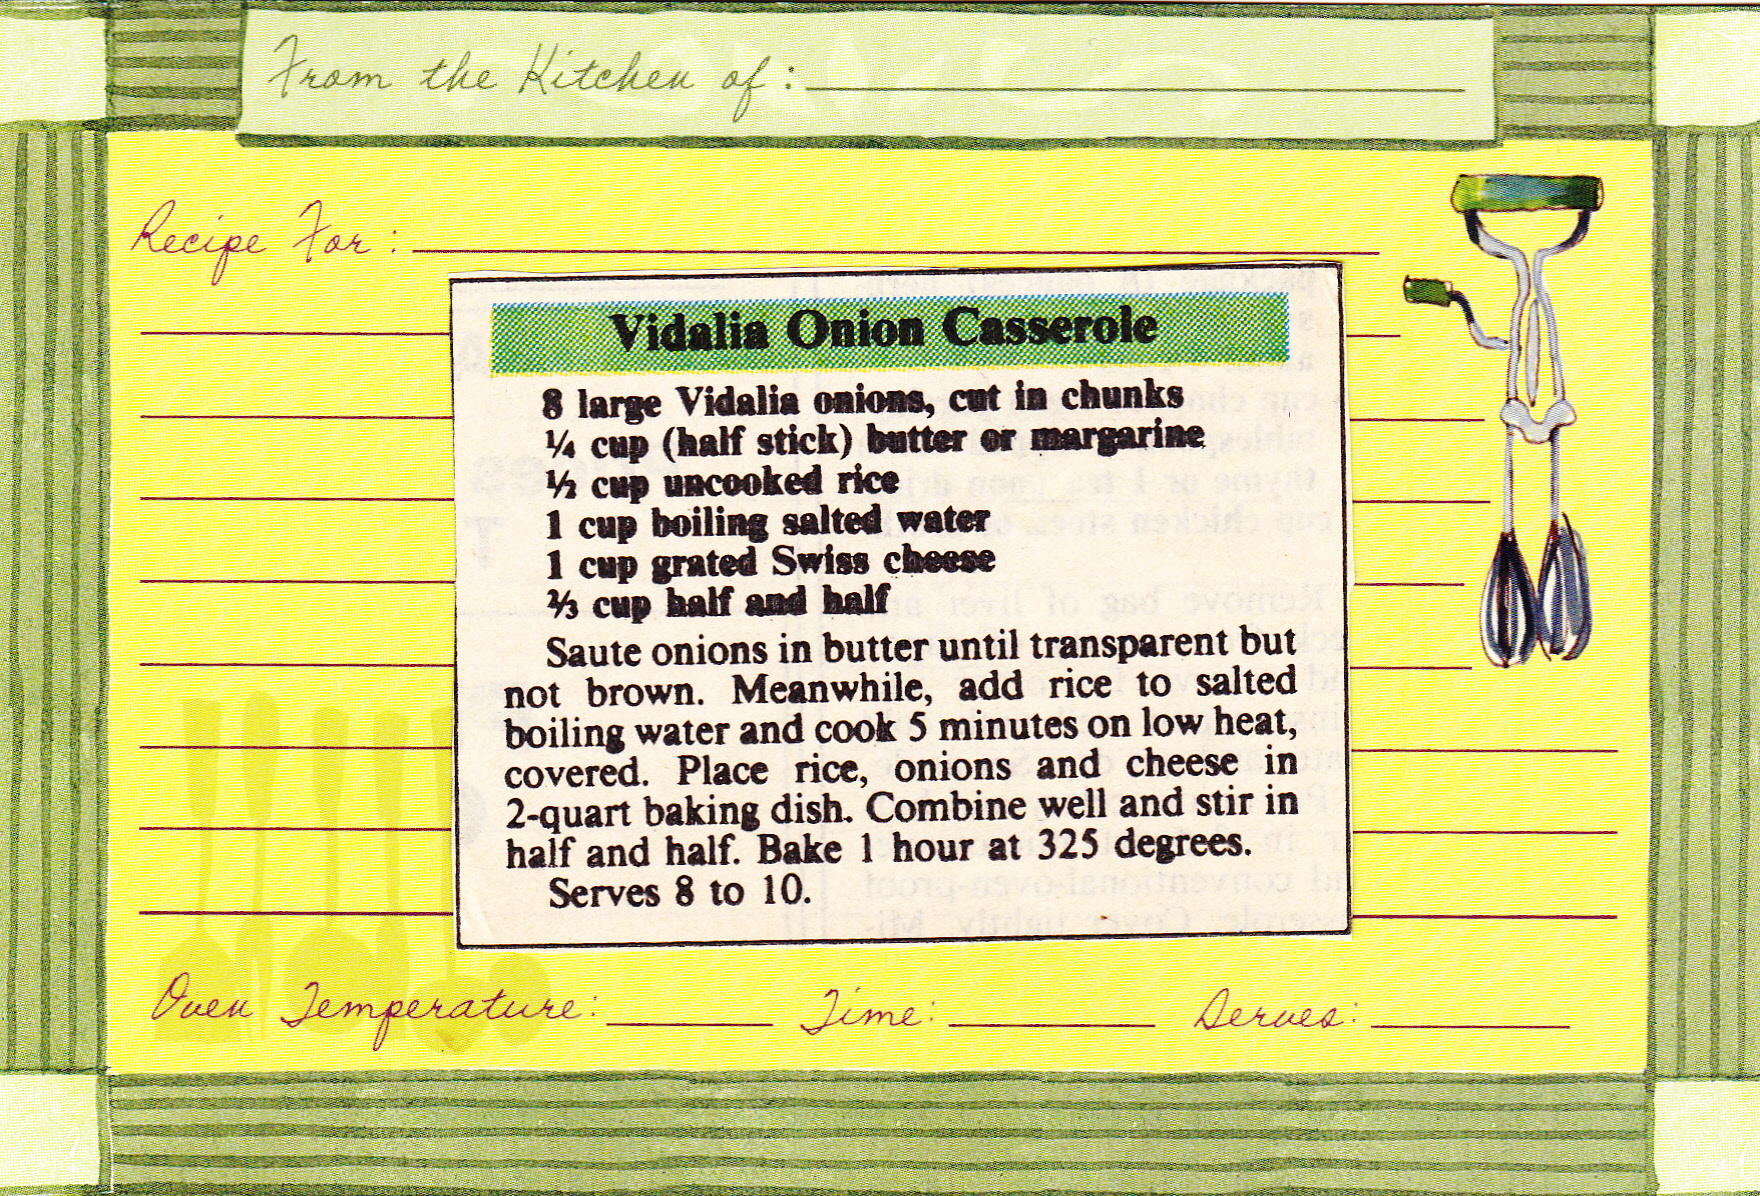 From the Kitchen of:
Recipe For:
Vidalia Onion Casserole
8 large Vidalia onions, cut in chunks
¼ cup (half stick) butter or margarine
½ cup uncooked rice
1 cup boiling salted water
1 cup grated Swiss cheese
⅔ cup half and half
Saute onions in butter until transparent but
not brown. Meanwhile, add rice to salted
boiling water and cook 5 minutes on low heat,
covered. Place rice, onions and cheese in
2-quart baking dish. Combine well and stir in
half and half. Bake 1 hour at 325 degrees.
Serves 8 to 10.
Oven Temperature: Time: Serves: